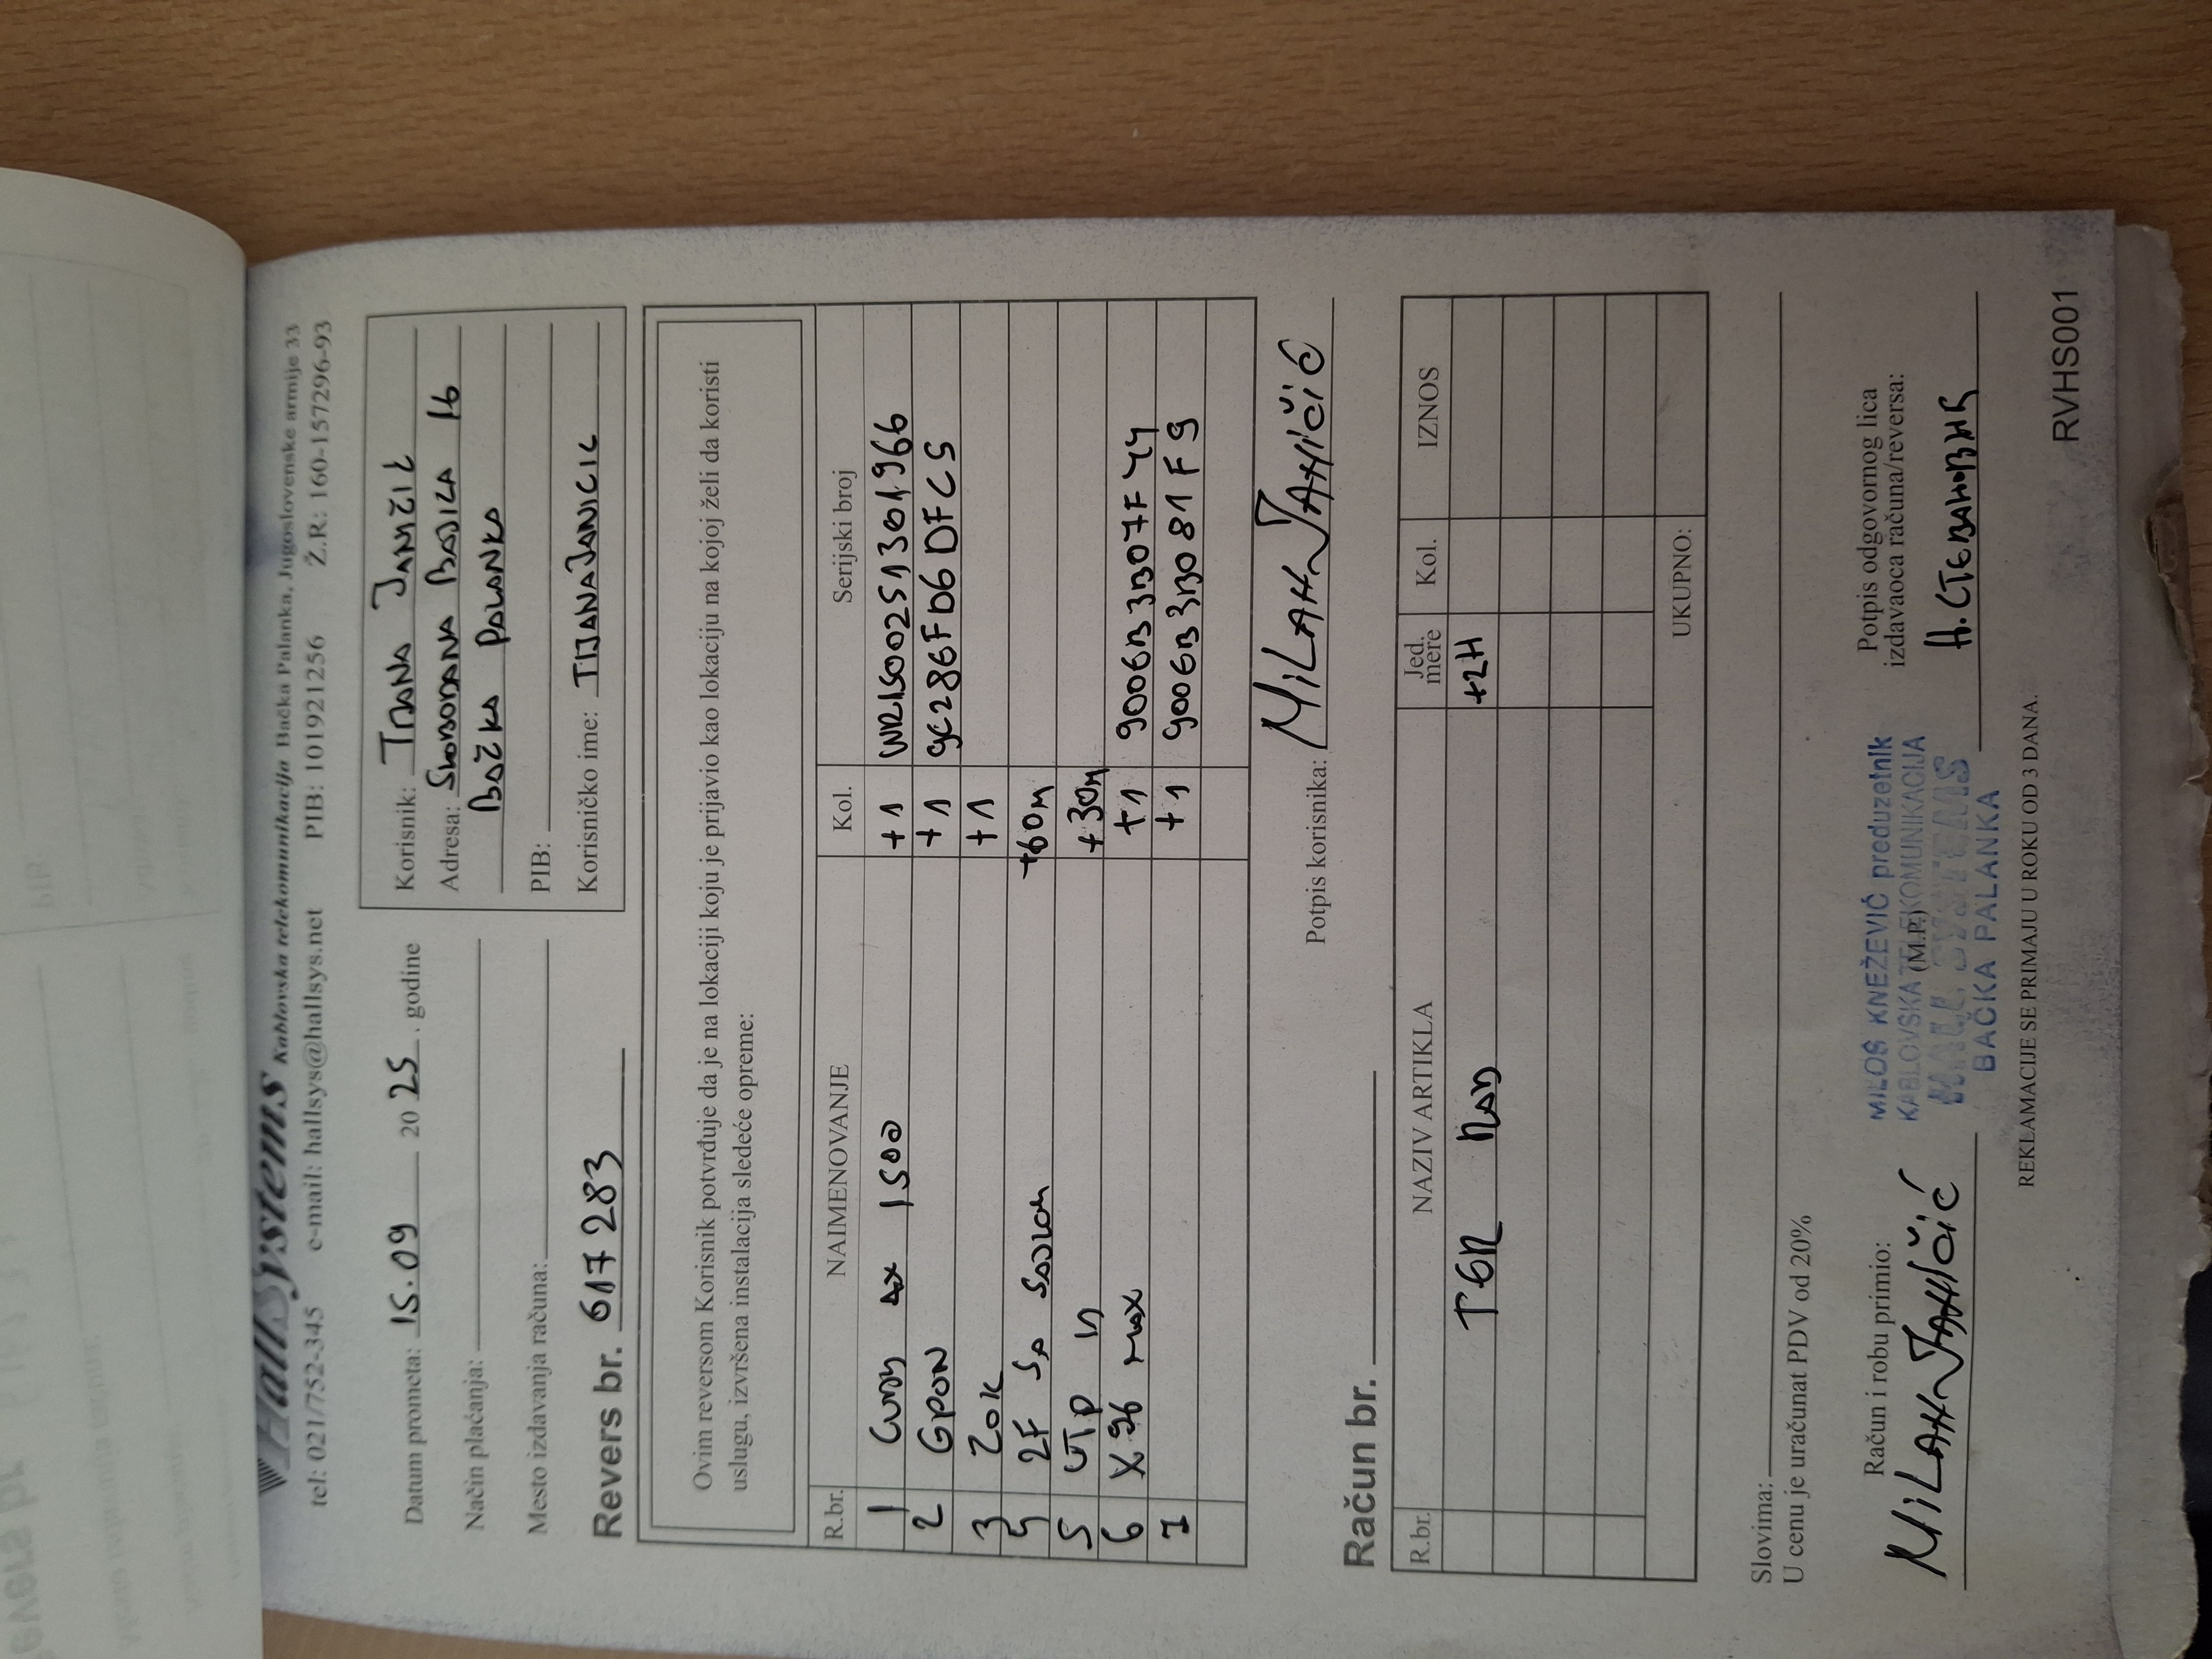 HallSystems Kablovska telekomunikacija Bačka Palanka, Jugoslovenske armije 33
tel: 021/752-345 e-mail: hallsys@hallsys.net PIB: 101921256 Ž.R: 160-1572296-93
Datum prometa: 15.09 2025. godine
Način plaćanja:
Mesto izdavanja računa:
Revers br. 617283
Korisnik: TIJANA JANČIĆ
Adresa: SLOBODANA BAJIĆA 16
BAČKA PALANKA
PIB:
Korisničko ime: TIJANAJANCIC
Ovim reversom Korisnik potvrđuje da je na lokaciji koju je prijavio kao lokaciju na kojoj želi da koristi
uslugu, izvršena instalacija sledeće opreme:
R.br. NAIMENOVANJE Kol. Serijski broj
1 CUDY AX 1500 +1 WR1500251301966
2 GPON +1 9C286FD6DFC5
3 ZOK +1
4 2F SA +60m
5 UTP +30m
6 X96 MAX +1 9006B3B07F44
7 +1 9006B3B081F9
Potpis korisnika: MILAN JANČIĆ
Račun br.
R.br. NAZIV ARTIKLA Jed. mere Kol. IZNOS
+2H
UKUPNO:
Slovima:
U cenu je uračunat PDV od 20%
Račun i robu primio:
MILAN JANČIĆ
MILOŠ KNEŽEVIĆ preduzetnik
KABLOVSKA TELEKOMUNIKACIJA
(M.P.)
HALL SYSTEMS
BAČKA PALANKA
Potpis odgovornog lica
izdavaoca računa/reversa:
Н.СТЕВАНОВИЋ
REKLAMACIJE SE PRIMAJU U ROKU OD 3 DANA.
RVHS001